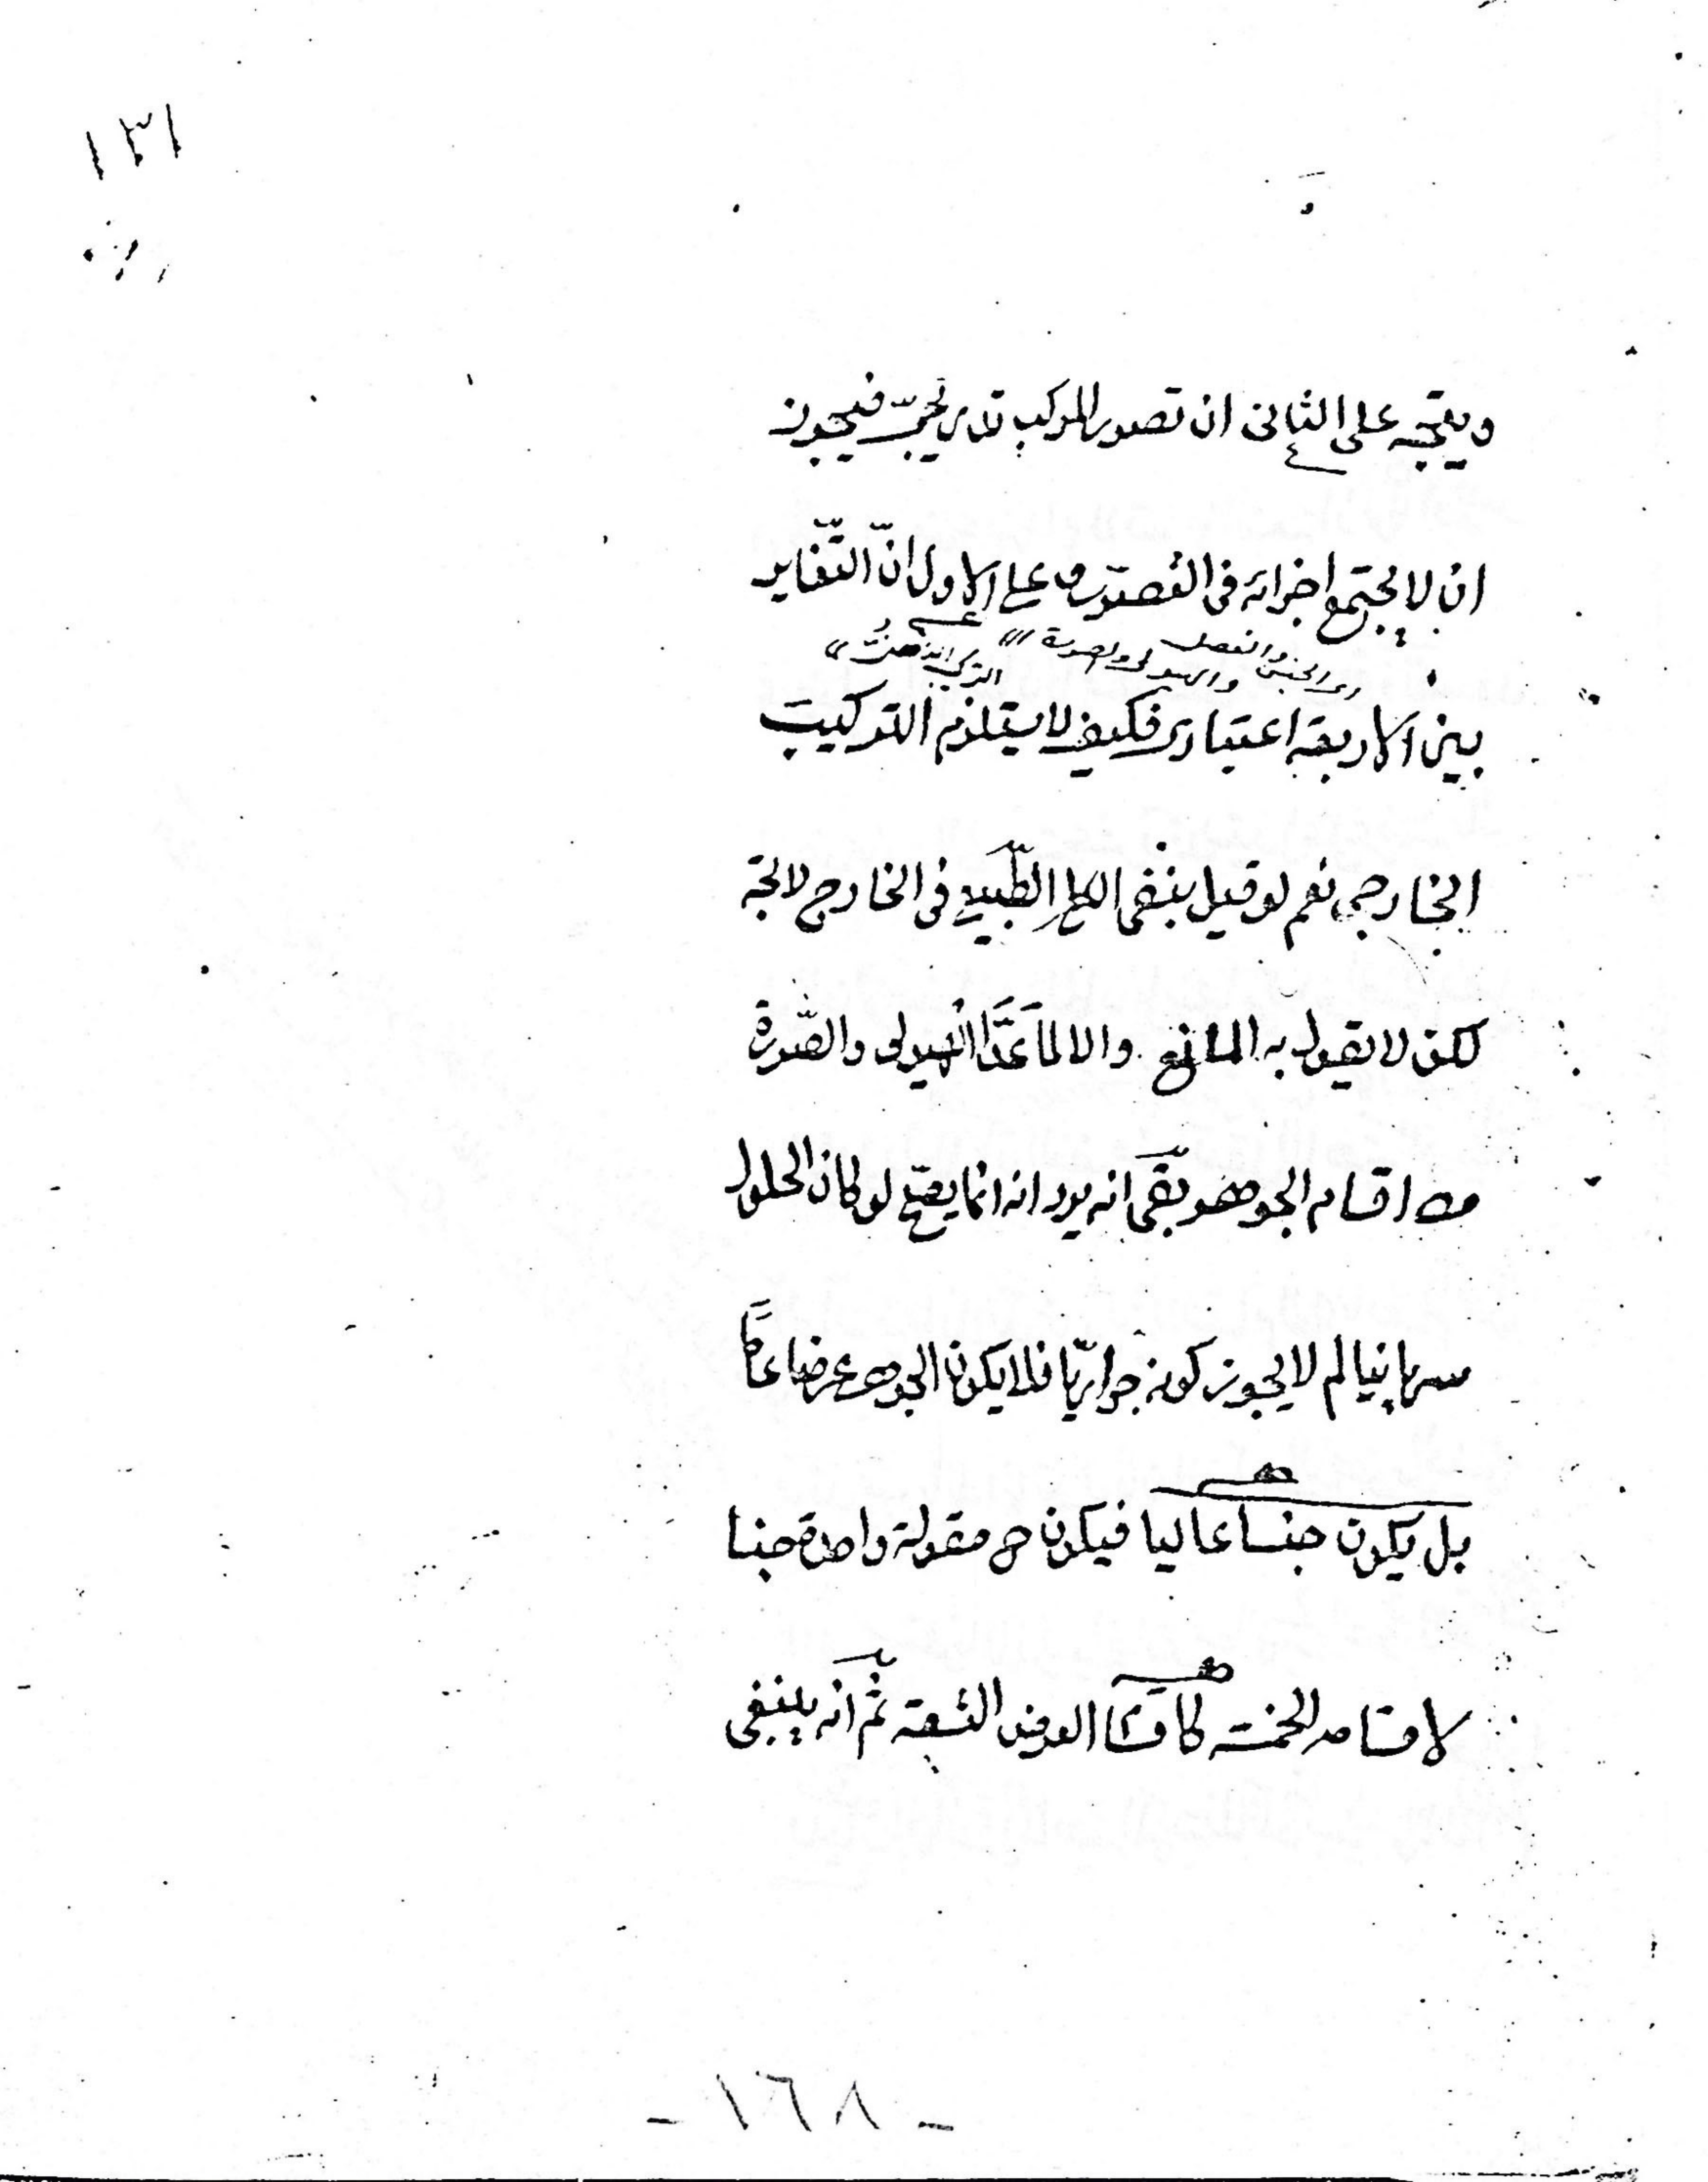 ١٣١
ويتجه على الثانى ان تصور المركب تدريجىّ فيجوز
ان لا يجتمع اجزائه فى التصور وعلى الاول انّ التّغاير
اى الجنس والفصل والهيولى والصورة
التركيب الذهنى
بين الاربعة اعتبارى فكيف لا يستلزم التركيب
الخارجى نعم لو قيل بنفى الكلى الطّبيعى فى الخارج لاتجه
لكن لا يقول به المانع والا لما عدّ الهيولى والصّورة
من اقسام الجوهر وبقى انه يرد انه انما يصح لو كان الحلول
سريانيا لم لا يجوز كونه جواريّا فلا يكون الجوهر عرضا عامّا
بل يكون جنسا عاليا فيكون ح مقولة واحدة جنسا
لاقسامه الخمسة كاقسام العرض التسعة ثمّ انه ينبغى
- ١٦٨ -